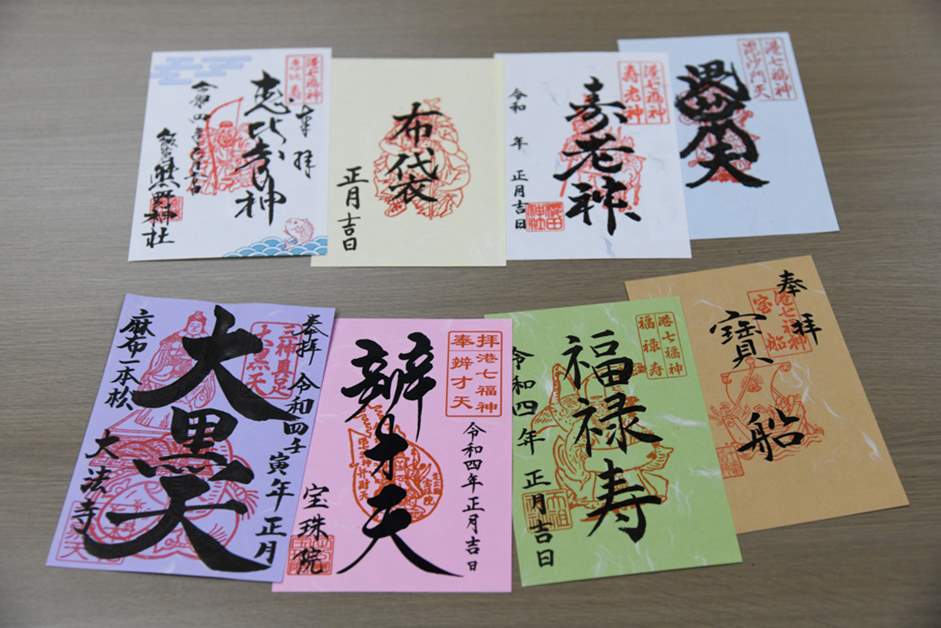 奉拝
恵比寿神
令和四年正月吉日
飯倉熊野神社
港七福神
恵比寿
布袋
正月吉日
港七福神
寿老神
寿老神
令和 年 正月吉日
港七福神
毘沙門天
奉拝 令和四壬寅年正月
大黒天
麻布一本松
大法寺
三神具足
大黒天
拝港七福神
奉辨才天
辨才天
令和四年正月吉日
宝珠院
港七福神
福禄寿
福禄寿
令和四年 正月吉日
奉拝
港七福神
宝船
寶船